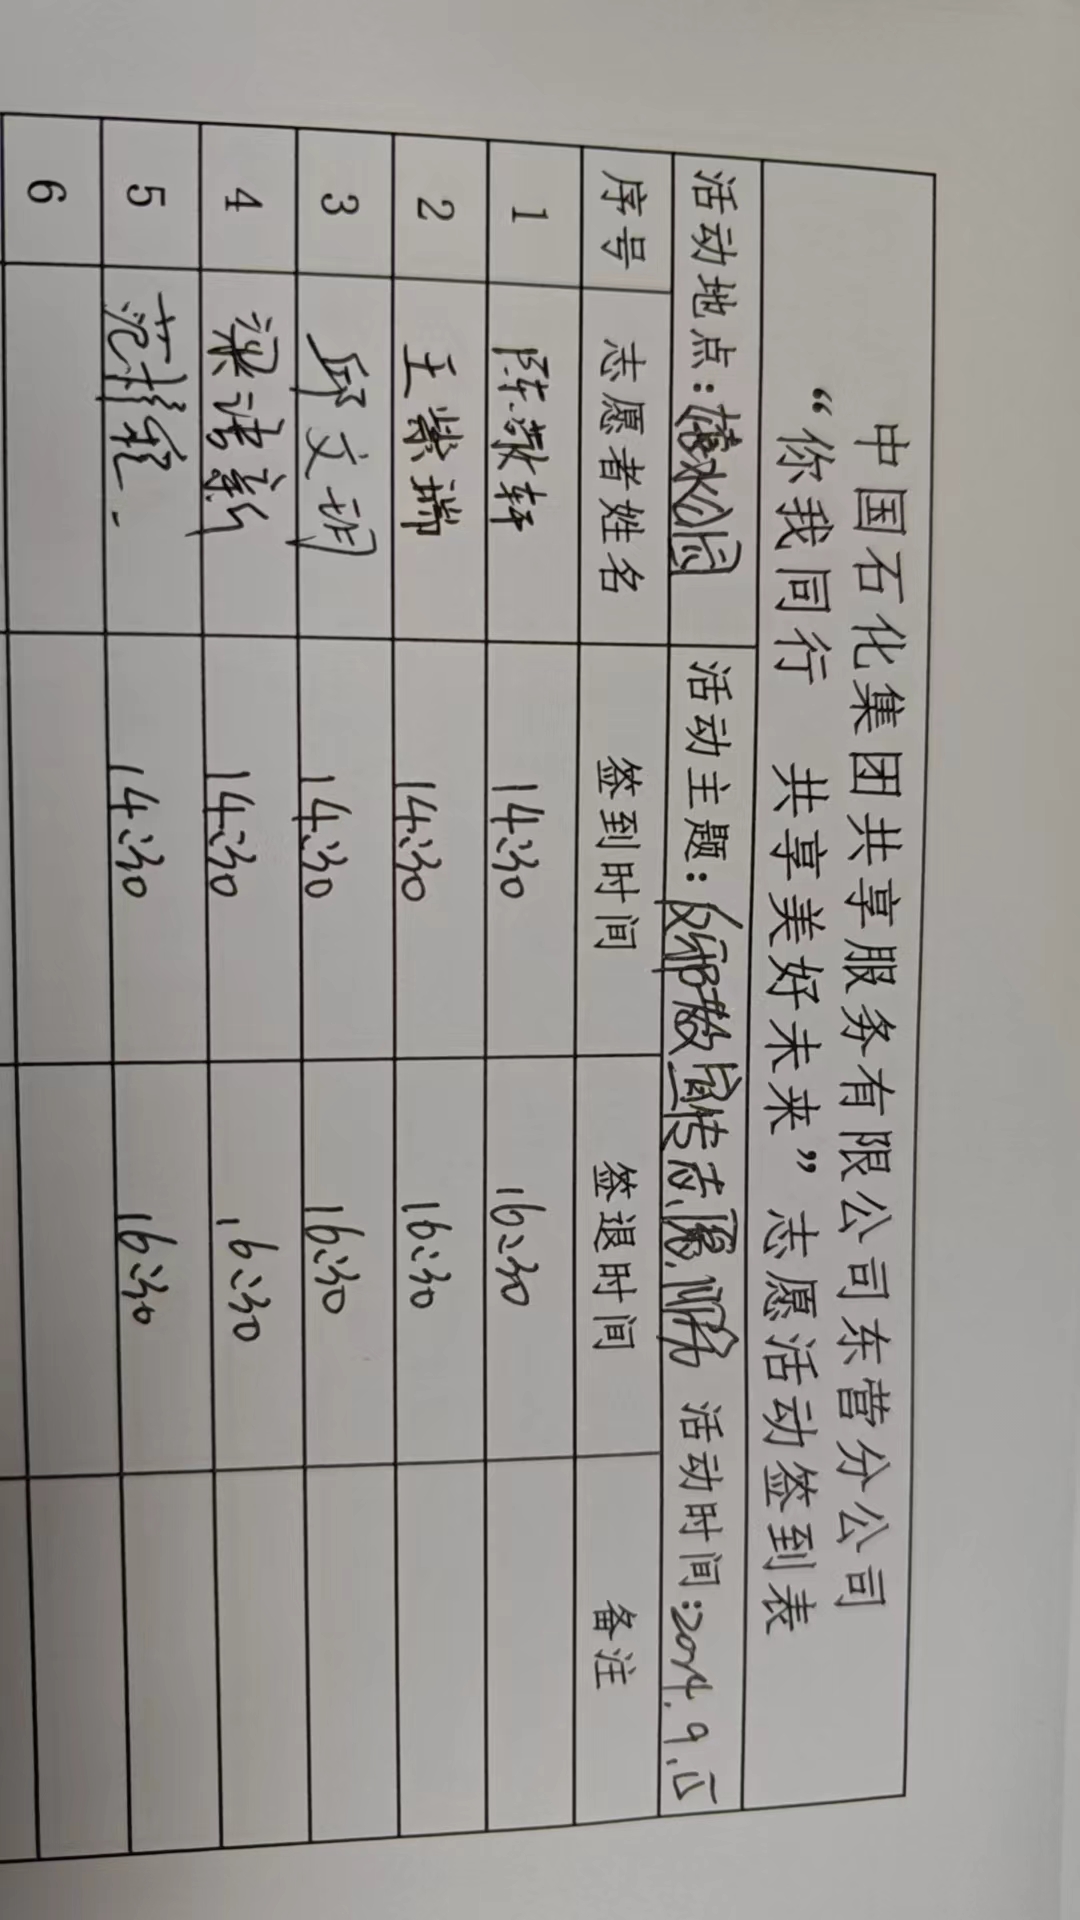 中国石化集团共享服务有限公司东营分公司
“你我同行 共享美好未来”志愿活动签到表
活动地点： 活动主题： 宣传志愿服务 活动时间：2024.9.15
序号 志愿者姓名 签到时间 签退时间 备注
1 陈敬轩 14:30 16:30
2 王紫瑞 14:30 16:30
3 邱文玥 14:30 16:30
4 梁洁新 14:30 16:30
5 范 14:30 16:30
6